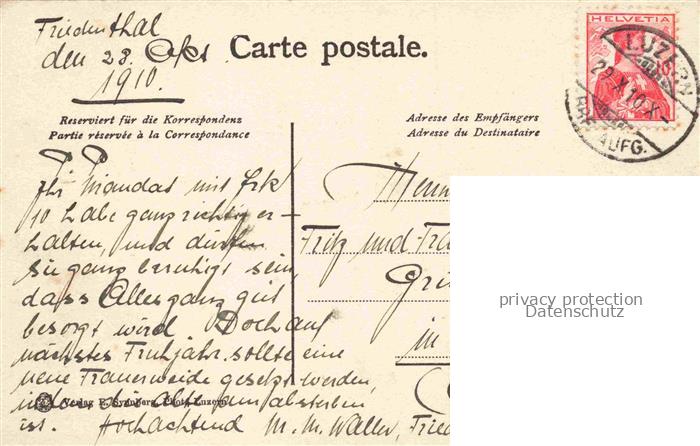 Friedenthal
den 28. Okt.
1910.
Carte postale.
HELVETIA
LUZERN
29.X.10.X-
BRF. AUFG.
Reserviert für die Korrespondenz
Partie réservée à la Correspondance
Adresse des Empfängers
Adresse du Destinataire
P. P.
Ihr Mandat mit Frk
10 habe ganz richtig er-
halten, und dürfen
Sie ganz beruhigt sein,
dass Alles ganz gut
besorgt wird. Doch auf
nächstes Frühjahr sollte eine
neue Trauerweide gesetzt werden,
indem die alte am absterben
ist. Hochachtend M. M. Waller, Fried
Fritz und
in
Verlag E. Synnberg, Phot. Luzern
privacy protection
Datenschutz